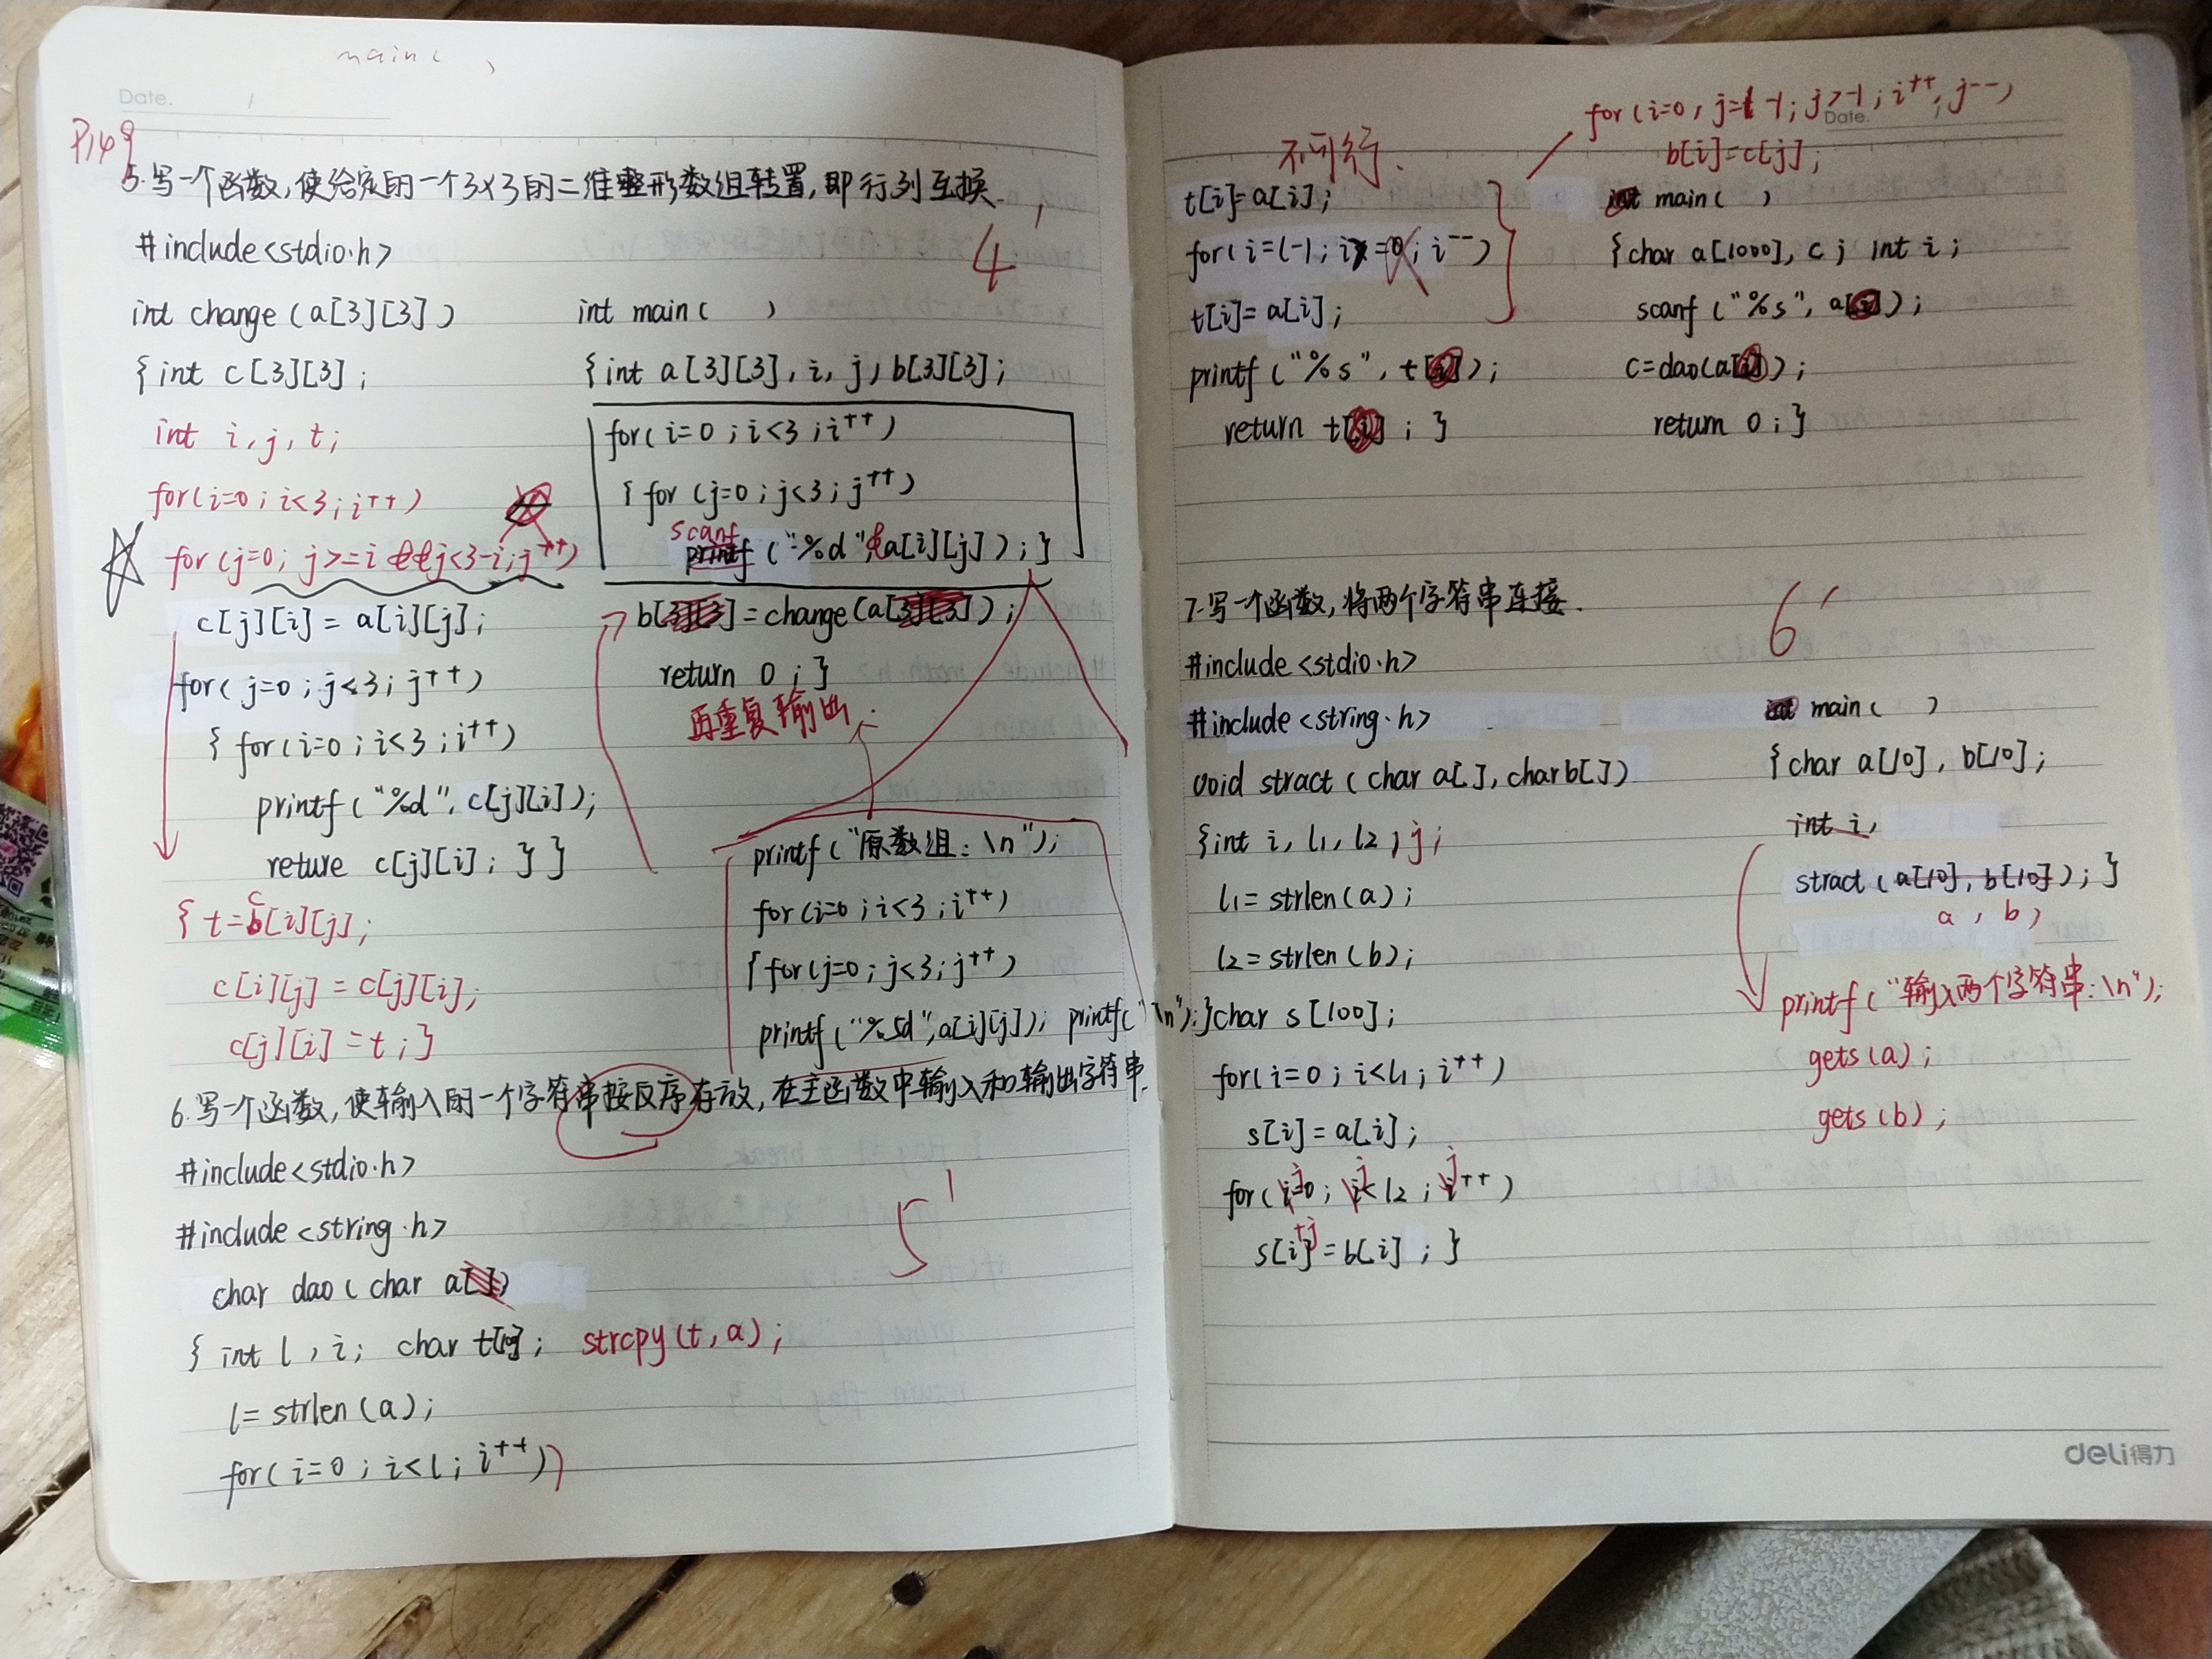 main( )
Date.
P149
5.写一个函数,使给定的一个3×3的二维整形数组转置,即行列互换.
4'
#include<stdio.h>
int change(a[3][3])
{int c[3][3];
int i,j,t;
for(i=0;i<3;i++)
for(j=0; j>=i &&j<3-i;j++)
c[j][i]=a[i][j];
for(j=0;j<3;j++)
{for(i=0;i<3;i++)
printf("%d",c[j][i]);
reture c[j][i];}}
{t=c[i][j];
c[i][j]=c[j][i];
c[j][i]=t;}
int main( )
{int a[3][3],i,j,b[3][3];
for(i=0;i<3;i++)
{for(j=0;j<3;j++)
scanf
printf("%d",&a[i][j]);}
b[3][3]=change(a[3][3]);
return 0;}
再重复输出.
printf("原数组:\n");
for(i=0;i<3;i++)
{for(j=0;j<3;j++)
printf("%5d",a[i][j]); printf("\n");}
6.写一个函数,使输入的一个字符串按反序存放,在主函数中输入和输出字符串.
5'
#include<stdio.h>
#include<string.h>
char dao(char a[])
{int l,i; char t[10]; strcpy(t,a);
l=strlen(a);
for(i=0;i<l;i++))
Date.
for(i=0,j=l-1;j>-1;i++,j--)
b[i]=c[j];
不可行.
t[i]=a[i];
for(i=l-1;i>=0;i--)
t[i]=a[i];
printf("%s",t[i]);
return t[i];}
int main( )
{char a[1000],c; int i;
scanf("%s",a[i]);
c=dao(a[i]);
return 0;}
7.写一个函数,将两个字符串连接.
6'
#include<stdio.h>
#include<string.h>
void stract(char a[],char b[])
{int i,l1,l2,j;
l1=strlen(a);
l2=strlen(b);
char s[100];
for(i=0;i<l1;i++)
s[i]=a[i];
for(j=0;j<l2;j++)
s[i+j]=b[i];}
int main( )
{char a[10],b[10];
int i,
stract(a[10],b[10]);}
a , b)
printf("输入两个字符串:\n");
gets(a);
gets(b);
deli得力